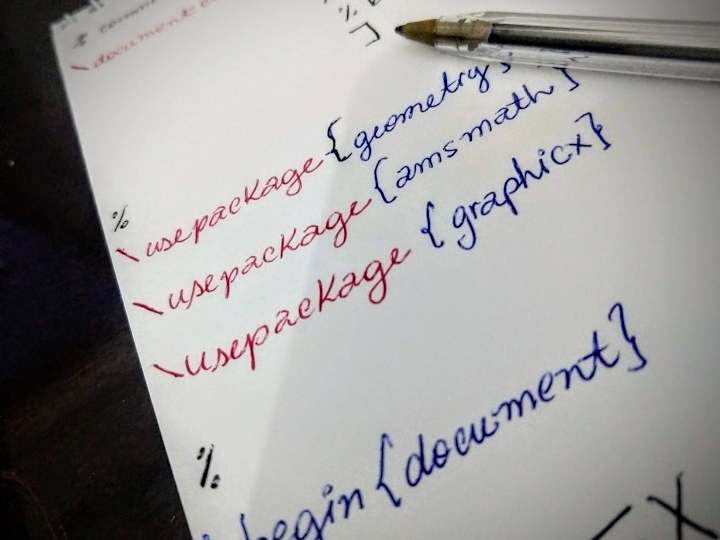 %
\document
%
]
%
\usepackage{geometry}
\usepackage{amsmath}
\usepackage{graphicx}
%
\begin{document}